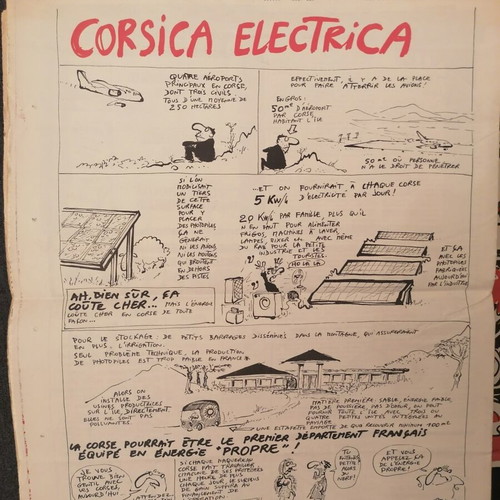 CORSICA ELECTRICA
QUATRE AÉROPORTS
PRINCIPAUX EN CORSE,
DONT TROIS CIVILS
TOUS D'UNE MOYENNE DE
250 HECTARES
EFFECTIVEMENT, IL Y A DE LA PLACE
POUR FAIRE ATTERRIR LES AVIONS!
EN GROS:
50 m² D'AÉROPORT
PAR CORSE
HABITANT L'ÎLE
50 m² OÙ PERSONNE
N'A LE DROIT DE PÉNÉTRER
SI L'ON
MOBILISAIT
UN TIERS
DE CETTE
SURFACE
POUR Y
PLACER
DES PHOTOPILES
ÇA NE
GÊNERAIT
NI LES AVIONS
NI LES MOUTONS
QUI BROUTENT
EN DEHORS
DES PISTES
...ET ON FOURNIRAIT À CHAQUE CORSE
5 KW/h D'ÉLECTRICITÉ PAR JOUR!
20 KW/h PAR FAMILLE, PLUS QU'IL
N'EN FAUT POUR ALIMENTER
FRIGOS, MACHINES À LAVER,
LAMPES, MIXER ... AVEC MÊME
DU RAB POUR LA PETITE
INDUSTRIE ET LES
TOURISTES.
ET ÇA
AVEC LES
PHOTOPILES
FABRIQUÉES
AUJOURD'HUI
PAR L'INDUSTRIE
AH, BIEN SUR, ÇA
COÛTE CHER... MAIS L'ÉNERGIE
COÛTE CHER EN CORSE DE TOUTE
FAÇON...
POUR LE STOCKAGE: DE PETITS BARRAGES DISSÉMINÉS DANS LA MONTAGNE, QUI ASSURERAIENT
EN PLUS, L'IRRIGATION.
SEUL PROBLÈME TECHNIQUE, LA PRODUCTION
DE PHOTOPILES EST TROP FAIBLE EN FRANCE
ALORS ON
INSTALLE DES
USINES PRODUCTRICES
SUR L'ÎLE, DIRECTEMENT
ELLES NE SONT PAS
POLLUANTES.
MATIÈRE PREMIÈRE, SABLE, ÉNERGIE
PAS DE POUSSIÈRE
PAYSAGE
LA CORSE POURRAIT ÊTRE LE PREMIER DÉPARTEMENT FRANÇAIS
ÉQUIPÉ EN ÉNERGIE "PROPRE"!
JE VOUS
TROUVE
BIEN
AVEC LES
CORSES,
AUJOURD'HUI
ATTENDEZ
SI CHAQUE MAQUEREAU
CORSE FAIT TRAVAILLER
UNE HEURE DE PLUS
CHAQUE JOUR LE SURPLUS
FINANCEMENT DE
TU
PETITE
ALORS DU
NERF!
ET VOUS
APPELEZ ÇA
DE L'ÉNERGIE
PROPRE?